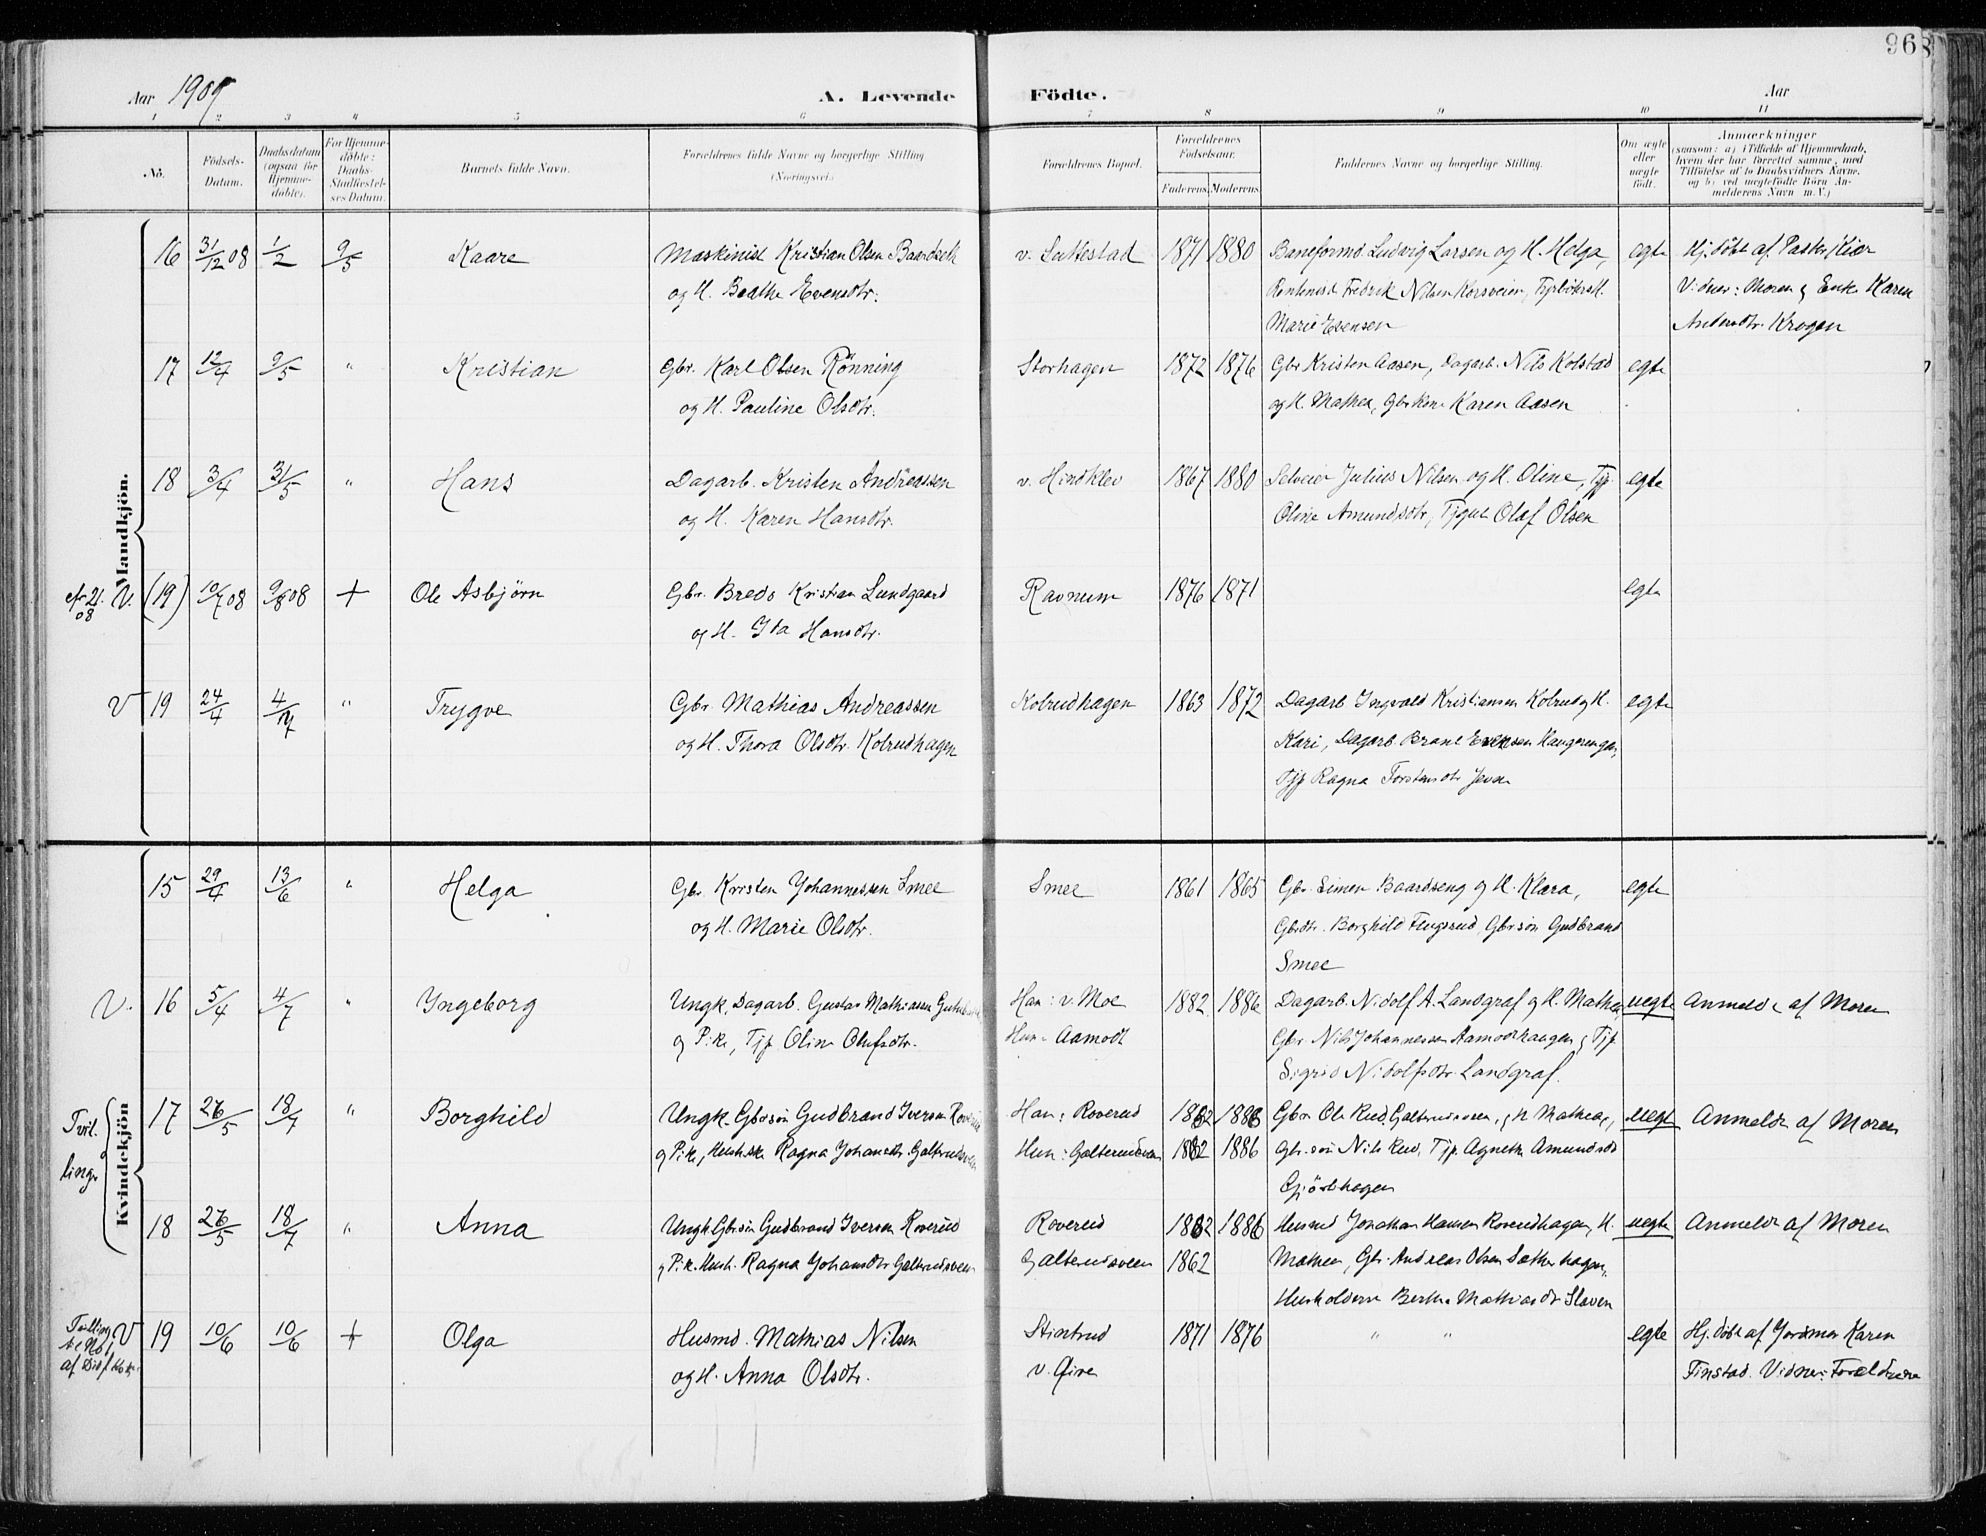 968
Aar 1909
A. Levende Födte.
Aar
1 2 3 4 5 6 7 8 9 10 11
No.
Födsels-Datum.
Daabsdatum (ogsaa for Hjemmedøbte).
For Hjemmedøbte: Daabs-Stadfæstelses Datum.
Barnets fulde Navn.
Forældrenes fulde Navne og borgerlige Stilling (Næringsvei.)
Forældrenes Bopæl.
Forældrenes Födselsaar.
Faderens. Moderens.
Faddernes Navne og borgerlige Stilling.
Om ægte eller uægte födt.
Anmærkninger (saasom: a) i Tilfælde af Hjemmedaab, hvem der har forrettet samme, med Tilföielse af to Daabsvidners Navne, og b) ved uægtefödte Börn Anmelderens Navn m. V.)
Mandkjön.
16 31/12 08 1/2 9/5 Kaare Maskinist Kristian Olsen Baardseth v. Suttestad 1871 1880 Baneformd Ludvig Larsen og H. Helga, egte Hj.døbt af Pastor Kiær
og H. Beathe Evensdtr. Fredrik Nilsen Korsveien, Vidner: Moren og Enke Karen
Marie Evensen Andersdtr. Krogen
17 12/4 9/5 " Kristian Gbr. Karl Olsen Rönning Storhagen 1872 1876 Gbr Kristen Aasen, Dagarb. Nils Kolstad egte
og H. Pauline Olsdtr. og H. Mathea, Gbrkone Karen Aasen
18 3/4 31/5 " Hans Dagarb. Kristen Andreassen v. Hindklev 1867 1880 Selveier Julius Nilsen og H. Oline, Tjp. egte
og H. Karen Hansdtr. Oline Amundsdtr, Tjgut Olaf Olsen
cfr 21. 08 V. (19) 10/7 08 9/8 08 + Ole Asbjørn Gbr. Brede Kristian Lundgaard Ravnum 1876 1871 egte
og H. Ida Hansdtr.
V 19 24/4 4/7 " Trygve Gbr. Mathias Andreassen Kolrudhagen 1863 1872 Dagarb Ingvald Kristiansen Kolrud og H. egte
og H. Thora Olsdtr. Kolrudhagen Kari, Dagarb. Evensen
Tjp Ragna Torstensdtr
Kvindekjön
15 29/4 13/6 " Helga Gbr. Kristen Johannessen Smee Smee 1861 1865 Gbr. Simen Baardseng og H. Klara, egte
og H. Marie Olsdtr. Gbrdtr. Borghild Flugsrud, Gbrsön Gudbrand
Smee
V. 16 5/4 4/7 " Yngeborg Ungk. Dagarb. Gustav Mathiesen Han: v. Moe 1882 1886 Dagarb. Nidolf A. Landgraf og H. Mathea uegte Anmeldt af Moren
og Pike, Tjp Oline Olufsdtr. Hun: Aamodt Gbr. Nils Johannessen Aamodthaugen, Tjp
Sigrid Nidolfsdtr Landgraf.
Tvillinger 17 26/5 18/7 " Borghild Ungk. Gbrsön Gudbrand Iversen Roverud Han: Roverud 1882 1886 Gbr Ole Rud, og H Mathea, uegte Anmeldt af Moren
og Pike, Hush. Ragna Johansdtr. Galterudsveen Hun: Galterudsveen 1862 1886 Gbr.sön Nils Rud, Tjp. Agnethe Amundsdtr
18 26/5 18/7 " Anna Ungk Gbrsön Gudbrand Iversen Roverud Roverud 1882 1886 Husmd Jonathan Hansen Roverudhagen, H. uegte Anmeldt af Moren
og Pike Hush. Ragna Johansdtr Galterudsveen Galterudsveen 1862 Mathea, Gbr. Andreas Olsen Sætherhagen,
Husholderske Berthe Mathiasdtr Slaven
Tvilling V 19 10/6 10/6 + Olga Husmd. Mathias Nilsen Stintrud 1871 1876 " " egte Hj.døbt af Jordmor Karen
og H. Anna Olsdtr. Finstad. Vidner: Forældrene